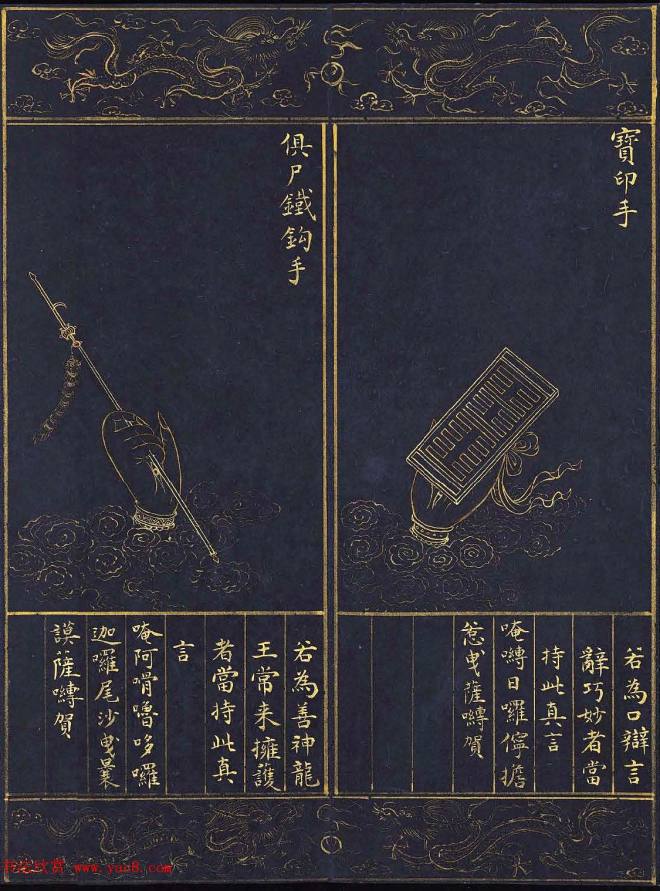 寶印手
若為口辯言
辭巧妙者當
持此真言
唵嚩日囉儜擔
惹曳薩嚩賀
俱尸鐵鈎手
若為善神龍
王常来擁護
者當持此真
言
唵阿嗗嚕哆囉
迦囉尾沙曳曩
謨薩嚩賀
www.yac8.com